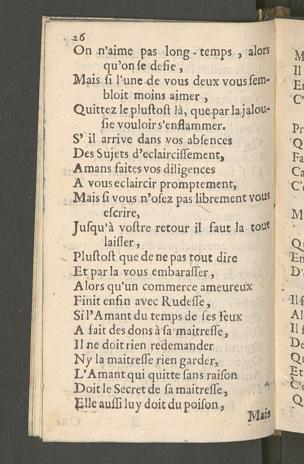 26
On n'aime pas long-temps, alors
qu'on se defie,
Mais si l'une de vous deux vous sem-
bloit moins aimer,
Quittez le plustost là, que par la jalou-
sie vouloir s'enflammer.
S'il arrive dans vos absences
Des Sujets d'eclaircissement,
Amans faites vos diligences
A vous eclaircir promptement,
Mais si vous n'osez pas librement vous
escrire,
Jusqu'à vostre retour il faut la tout
laisser,
Plustost que de ne pas tout dire
Et par la vous embarasser,
Alors qu'un commerce ameureux
Finit enfin avec Rudesse,
Si l'Amant du temps de ses feux
A fait des dons à sa maitresse,
Il ne doit rien redemander
Ny la maitresse rien garder,
L'Amant qui quitte sans raison
Doit le Secret de sa maitresse,
Elle aussi luy doit du poison,
Mais